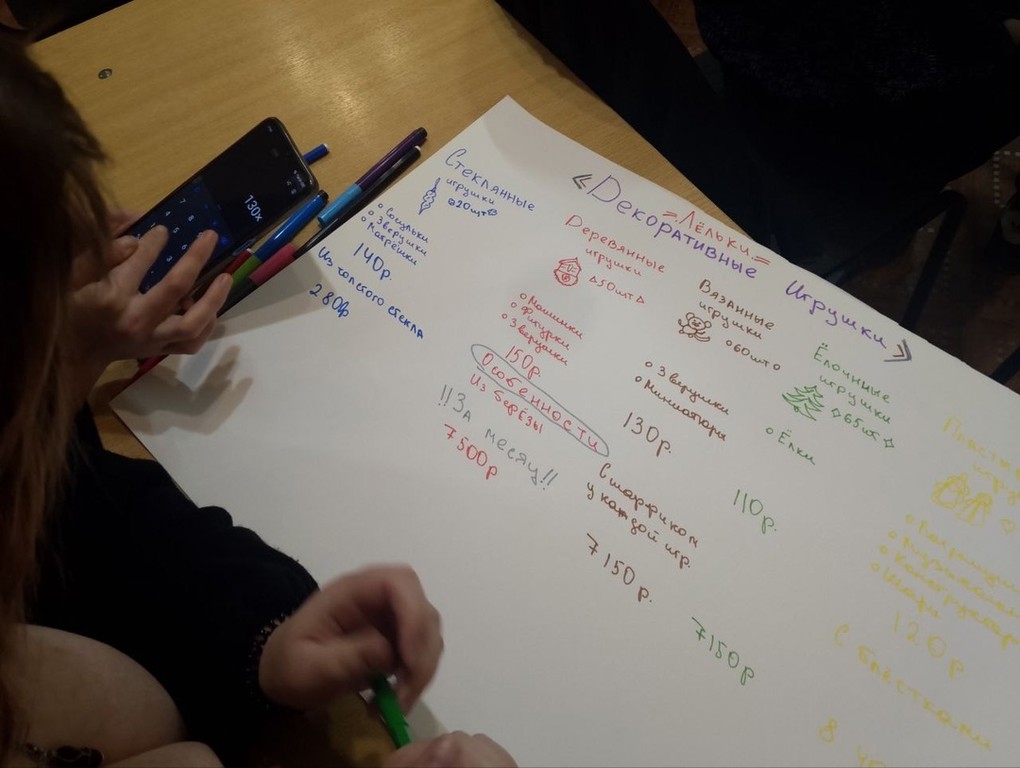 « Декоративные Игрушки »
= Лёльки =
Стеклянные
игрушки
20шт
Сосульки
Зверушки
Матрёшки
140р.
Из толстого стекла
280р
Деревянные
игрушки
50шт
Машинки
Фигурки
Зверушки
150р
Особенности
Из берёзы
!!За месяц!!
7500р
Вязанные
игрушки
60шт
Зверушки
Миниатюры
130р.
С шарфиком
у каждой игр.
7150р.
Ёлочные
игрушки
65шт
Ёлки
110р.
7150р
игру
120р
С блёстками
8
130x